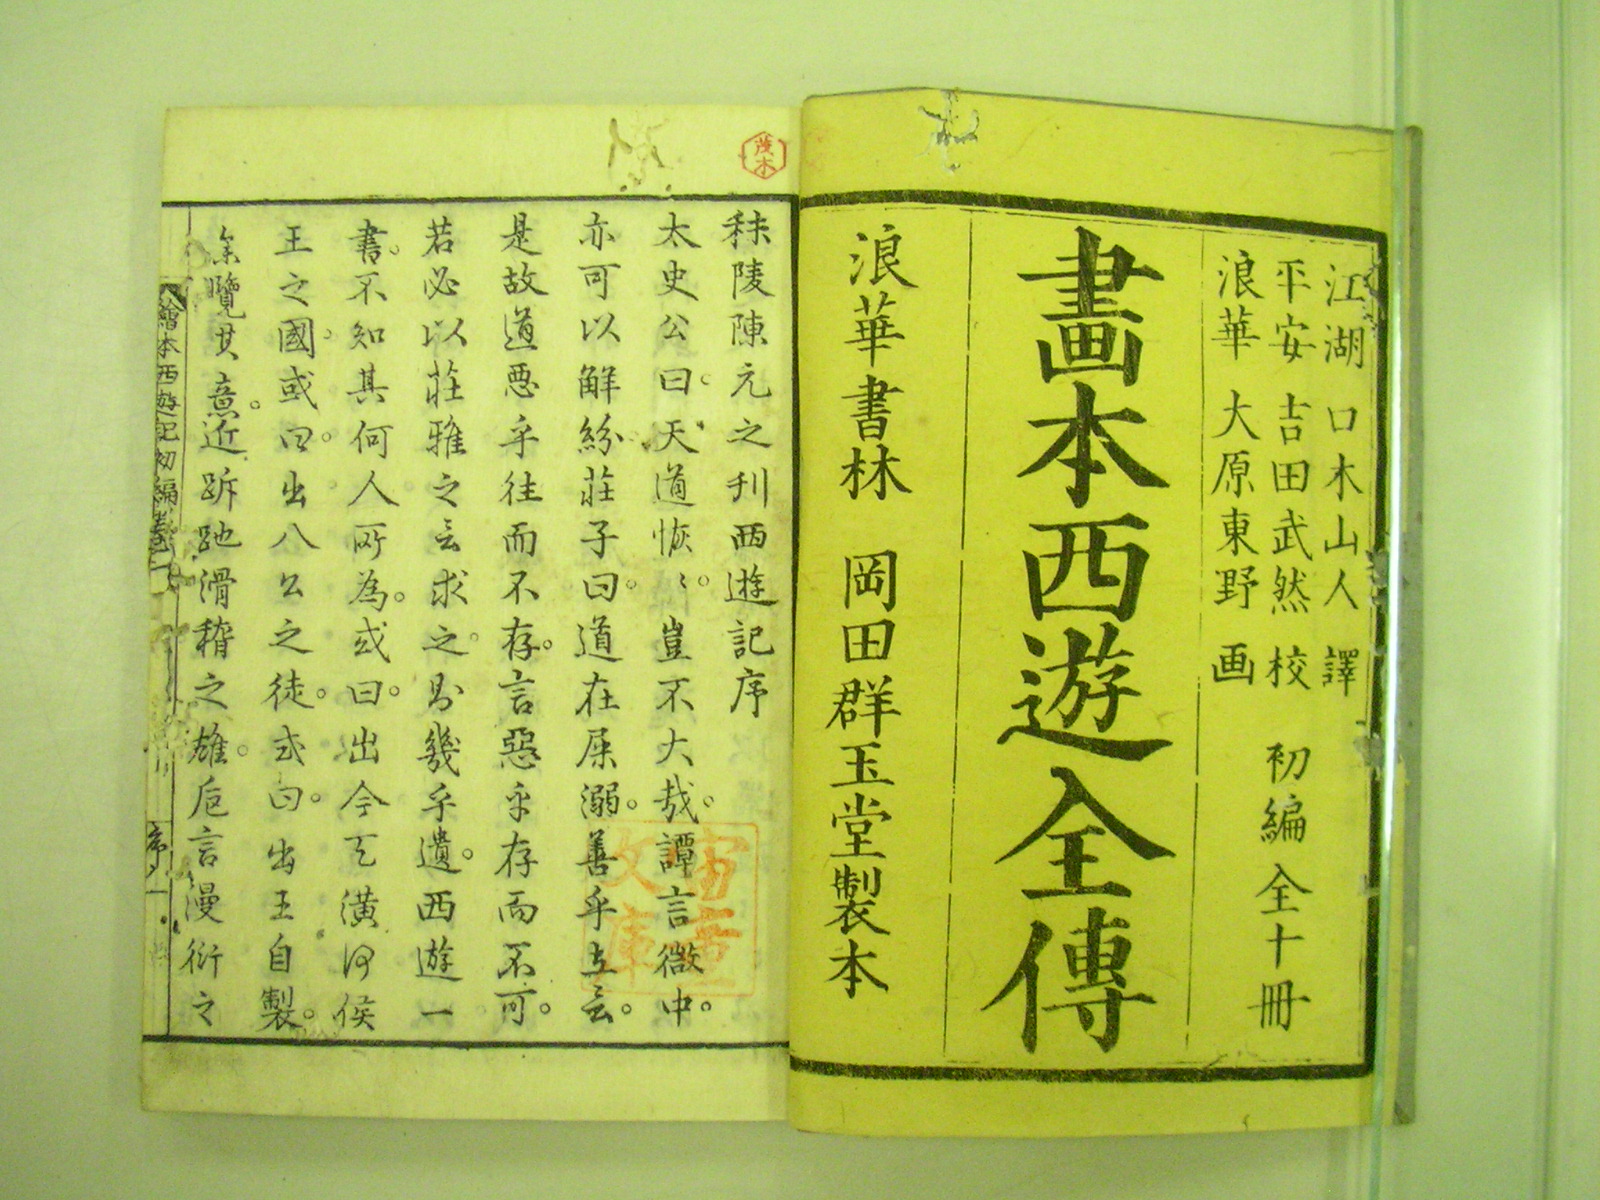 江湖 口木山人 譯
平安 吉田武然 校
浪華 大原東野 画
初編全十冊
畫本西遊全傳
浪華書林 岡田群玉堂製本
茂木
秣陵陳元之刊西遊記序
太史公曰。天道恢〻。豈不大哉。譚言微中。
亦可以解紛。莊子曰。道在屎溺。善乎立言。
是故道悪乎往而不存。言惡乎存而不可。
若必以莊雅之言求之。則幾乎遺。西遊一
書。不知其何人所為。或曰。出今天潢何侯
王之國。或曰。出八公之徒。或曰。出王自製。
余覽其意。近跅弛滑稽之雄。巵言漫衍之
繪本西遊記初編巻一
序一